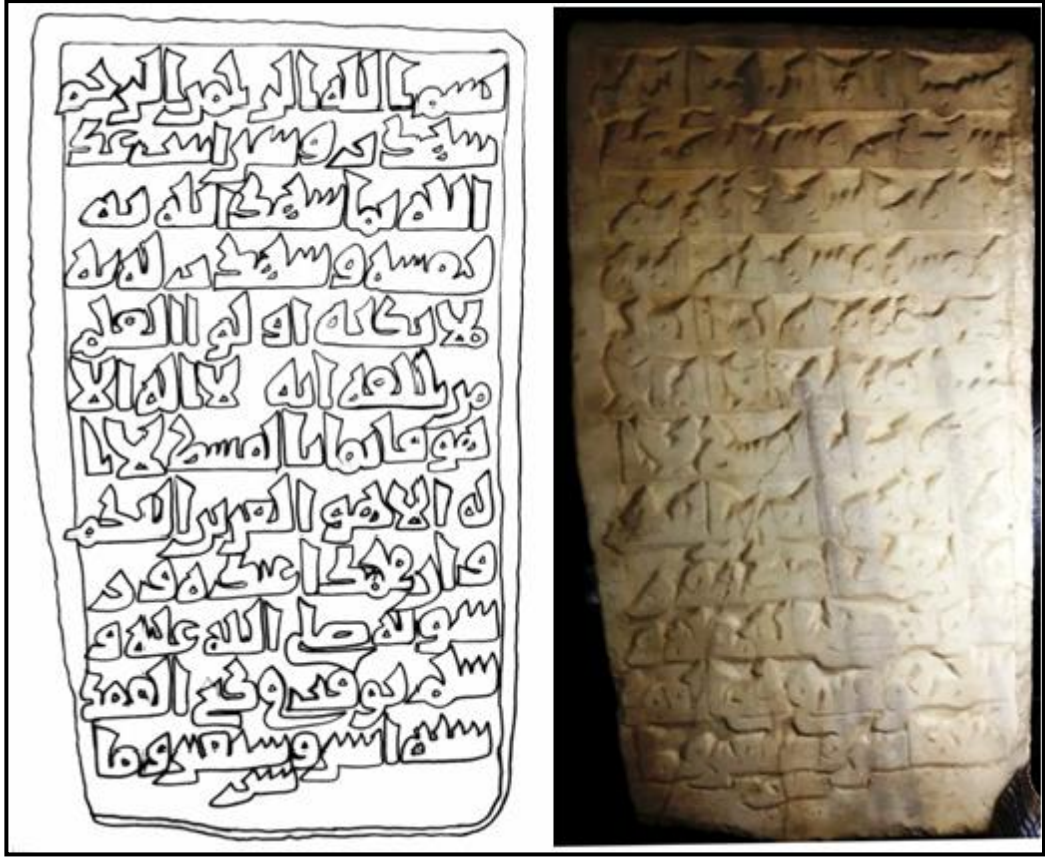 بسم الله الرحمن الرحيم
يشهد عبد
الله بما شهد الله به
لنفسه وشهدت له به
ملائكته او لو العلم
من خلقه انه لا اله الا
هو قائما بالقسط لا ا
له الا هو العزيز الحكيم
وان محمدا عبده ور
سوله صلى الله عليه و
سلم توفي
سنة اثنين وما
ئتين